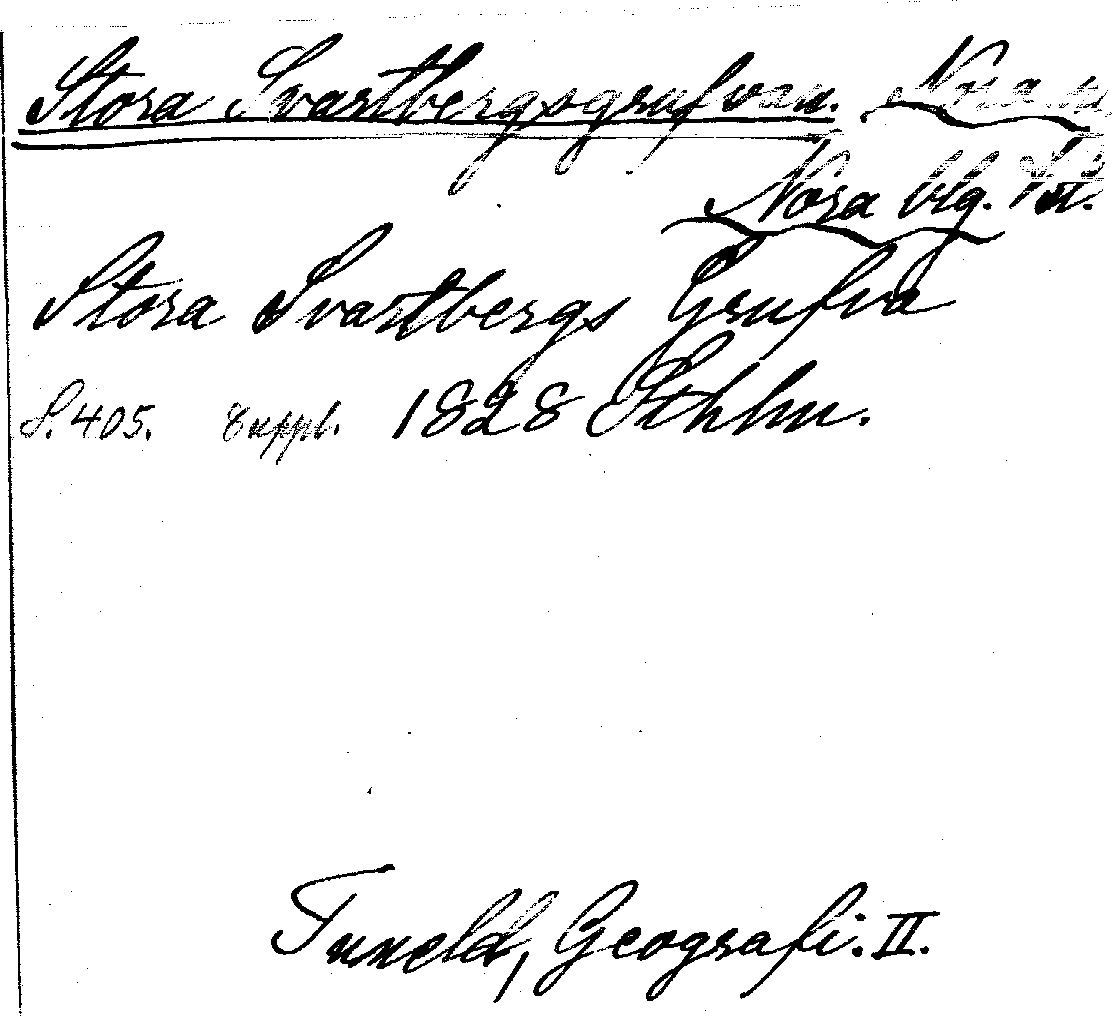 Stora Svartbergsgrufvan. Nora
Nora blg.
Stora Svartbergs Grufva
S. 405. Suppl. 1828 Sthlm.
Tuneld, Geografi. II.